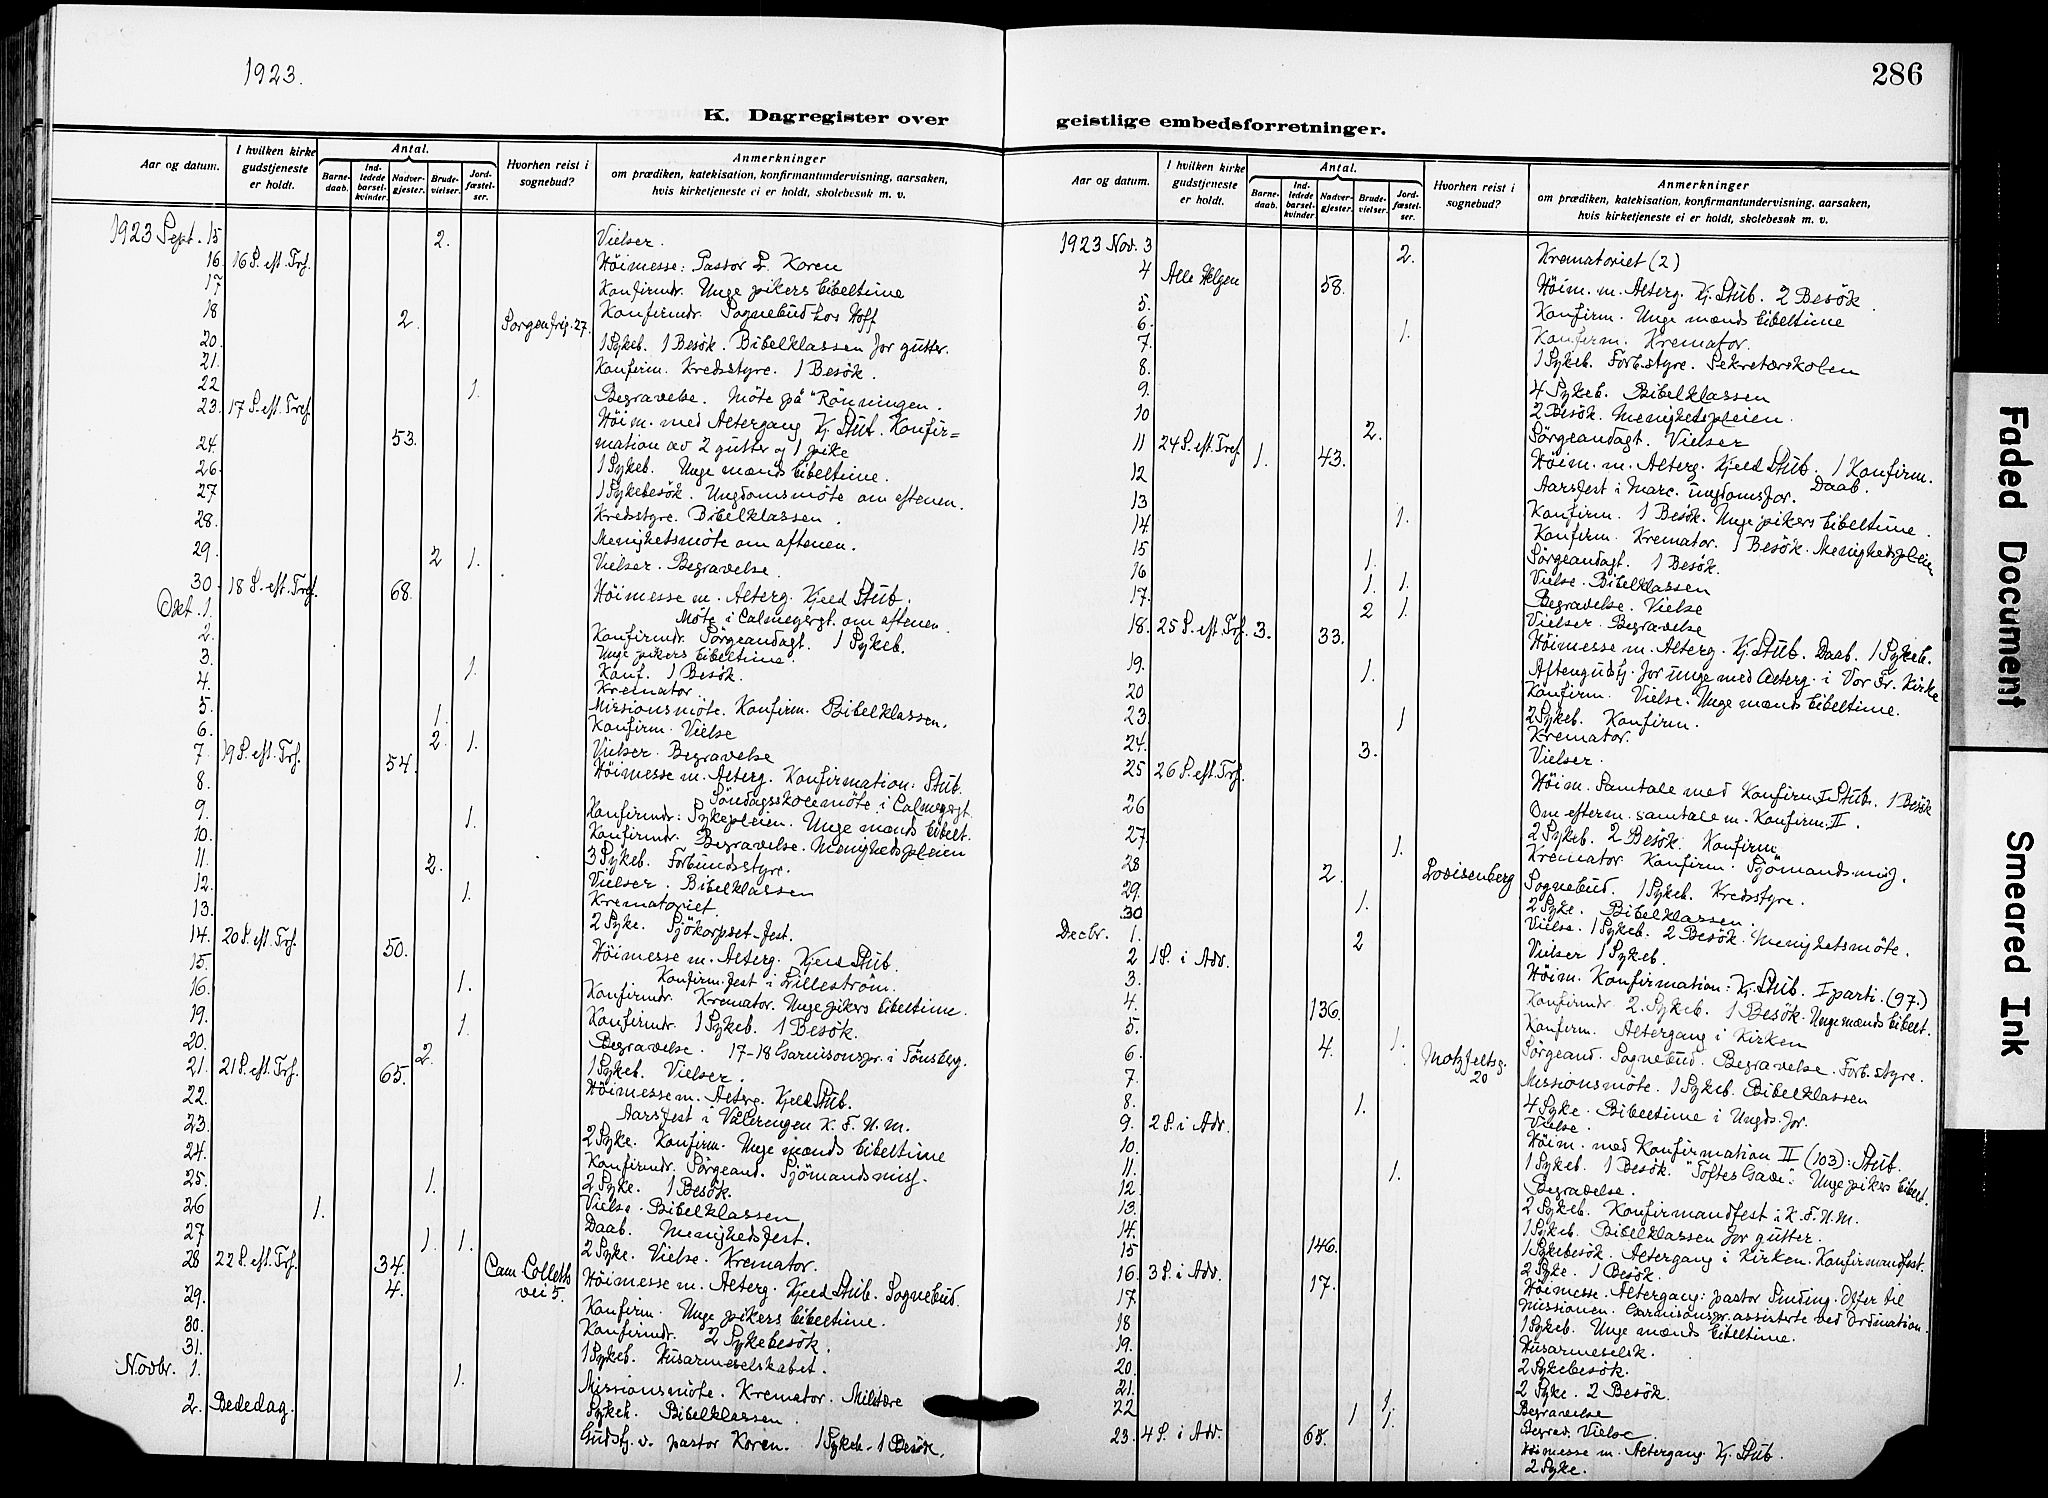 1923.
286
K. Dagregister over geistlige embedsforretninger.
Aar og datum.
I hvilken kirke gudstjeneste er holdt.
Antal.
Barnedaab.
Indledede barselkvinder.
Nadvergjester.
Brudevielser.
Jordfæstelser.
Hvorhen reist i sognebud?
Anmerkninger
om prædiken, katekisation, konfirmantundervisning, aarsaken,
hvis kirketjeneste ei er holdt, skolebesøk m. v.
1923 Sept. 15 2. Vielser.
16. 16 S. eft. Trf. Höimesse: Pastor L. Koren
17 Konfirmdr. Unge pikers bibeltime
18 2. Sorgenfrig. 27. Konfirmdr. Sognebud hos Hoff
20. 1 Sykeb. 1 Besök. Bibelklassen for gutter.
21. Konfirm. Kredsstyre. 1 Besök.
22 1. Begravelse. Möte på "Rönningen.
23. 17 S. eft. Tref. 53. Höim. med Altergang Kj. Stub. Konfir=
mation av 2 gutter og 1 pike
24. 1 Sykeb. Unge mænds bibeltime.
26. 1 Sykebesök. Ungdomsmöte om aftenen.
27 Kredsstyre. Bibelklassen.
28. Menighetsmöte om aftenen.
29. 2 1. Vielser. Begravelse.
30. 18 S. eft. Tref. 68. Höimesse m. Alterg. Kjeld Stub.
Okt. 1. Möte i Calmeyergt. om aftenen.
2. Konfirmdr. Sörgeandagt. 1 Sykeb.
Unge pikers bibeltime.
3. 1. Konf. 1 Besök.
Kremator.
4. Missionsmöte. Konfirm. Bibelklassen.
5. 1. Konfirm. Vielse
6. 2. 1. Vielser. Begravelse
7. 19 S. eft. Trf. 54. Höimesse m. Alterg. Konfirmation: Stub.
Söndagsskolemöte i Calmeyergt.
8. Konfirmdr: Sykepleien. Unge mænds bibelt.
9. 1. Konfirmdr. Begravelse. Menighedspleien
10. 3 Sykeb. Forbundsstyre.
11. 2. Vielser. Bibelklassen
12. 1. Krematoriet.
13. 2 Syke. Sjökorpset-fest.
14. 20 S. eft. Trf. 50. Höimesse m. Alterg. Kjeld Stub.
Konfirm. fest i Lilleström.
15. Konfirmdr. Kremator. Unge pikers bibeltime.
16. 1. Konfirmdr. 1 Sykeb. 1 Besök.
19. 1. Begravelse. 17-18 Garnisonspr. i Tönsberg.
20. 2. 1 Sykeb. Vielser.
21. 21 S. eft. Trf. 65. Höimesse m. Alterg. Kjeld Stub.
Aarsfest i Vålerengen K. F. U. M.
22. 2 Syke. Konfirm. Unge mænds bibeltime
23. Konfirmdr. Sörgeand. Sjömandsmisj.
24. 2 Syke. 1 Besök.
25. 1. Vielse. Bibelklassen
26 1. Daab. Menighedsfest.
27 1. 1. 2 Syke. Vielse. Kremator.
28 22 S. eft. Trf. 34. 4. Cam. Colletts vei 5. Höimesse m. Alterg. Kjeld Stub. Sognebud.
29. Konfirm. Unge pikers bibeltime.
30. Konfirmdr. 2 Sykebesök.
31. 1 Sykeb. Husarmeselskabet.
Novbr. 1. 1. Missionsmöte. Kremator. Militære
Sykeh. Bibelklassen.
2. Bededag. Gudstj. v. pastor Koren. 1 Sykeb. 1 Besök.
Aar og datum.
I hvilken kirke gudstjeneste er holdt.
Antal.
Barnedaab.
Indledede barselkvinder.
Nadvergjester.
Brudevielser.
Jordfæstelser.
Hvorhen reist i sognebud?
Anmerkninger
om prædiken, katekisation, konfirmantundervisning, aarsaken,
hvis kirketjeneste ei er holdt, skolebesøk m. v.
1923 Nov. 3 2. Krematoriet (2)
4 Alle Helgen 58. Höim. m. Alterg. Kj. Stub. 2 Besök.
5. Konfirm. Unge mænds bibeltime
6. 1. Konfirm. Kremator.
7. 1 Sykeb. Forb.styre. Sekretærskolen
8. 4 Sykeb. Bibelklassen
9. 2 Besök. Menighedspleien.
10 2. Sörgeandagt. Vielser
11 24 S. eft. Tref. 1. 43. Höim. m. Alterg. Kjeld Stub. 1 Konfirm.
Aarsfest i Marc. ungdomsfor. Daab.
12 Konfirm. 1 Besök. Unge pikers bibeltime.
13 1. Konfirm. Kremator. 1 Besök. Menighedspleien
14 Sörgeandagt. 1 Besök.
15 1. Vielse. Bibelklassen
16 1. 1. Begravelse. Vielse
17. 2 1. Vielser. Begravelse
18. 25 S. eft. Trf. 3. 33. Höimesse m. Alterg. Kj. Stub. Daab. 1 Sykeb.
Aftengudstj. for unge med Alterg. i Vor Fr. Kirke
19. 1. Konfirm. Vielse. Unge mænds bibeltime.
20 2 Sykeb. Konfirm.
23. 1 Kremator.
24. 3. Vielser.
25 26 S. eft. Trf. Höim. Samtale med Konfirm. I Stub. 1 Besök
Om efterm. samtale m. Konfirm. II.
26 2 Sykeb. 2 Besök. Konfirm
27. 1. Kremator Konfirm. Sjömandsmisj.
28 2. Lovisenberg Sognebud. 1 Sykeb. Kredsstyre.
29. 2 Syke. Bibelklassen.
30 1. Vielse. 1 Sykeb. 2 Besök. Menighetsmöte.
Decbr. 1. 2 Vielser 1 Sykeb.
2 1 S. i Adv. Höim. Konfirmation: Kj. Stub. I parti. (97.)
3. Konfirmdr 2. Sykeb. 1 Besök. Unge mænds bibelt.
4. 136. Konfirm. Altergang i Kirken
5. 4. 1. Motzfeltsg. 20 Sörgeand. Sognebud. Begravelse. Forb.styre.
6. Missionsmöte. 1 Sykeb. Bibelklassen
7. 4 Syke. Bibeltime i Ungds. for.
8. 1. Vielse.
9. 2 S. i Adv. Höim. med Konfirmation II (103): Stub.
10. 1 Sykeb. 1 Besök. "Toftes Gave". Unge pikers bibelt.
11. 1. Begravelse.
12. 2 Sykeb. Konfirmandfest i K. F. U. M.
13. 1 Sykeb. Bibelklassen for gutter.
14. 146. 1 Sykebesök. Altergang i Kirken. Konfirmandfest.
15 2 Syke. 1 Besök.
16. 3 S. i Adv. 17. Höimesse. Altergang: pastor Sinding. Offer til
missionen. Garnisonspr. assisterte ved Ordination.
17. 1 Sykeb. Unge mænds bibeltime.
18 Husarmeselsk.
19. 2 Sykebesök.
20. 2 Syke. 2 Besök.
21. 1. Begravelse
22 1 1. Begrav. Vielse
23. 4 S. i Adv. 65. Höimesse m. Altergang. Kj. Stub.
2 Syke.
Faded Document
Smeared Ink